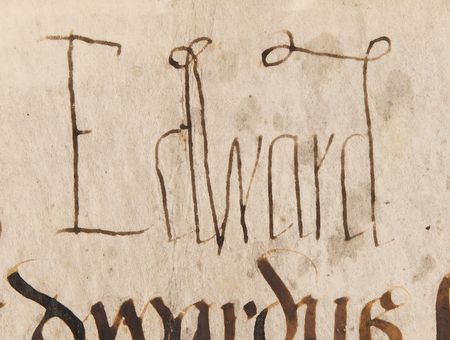 Edward
Edwardus